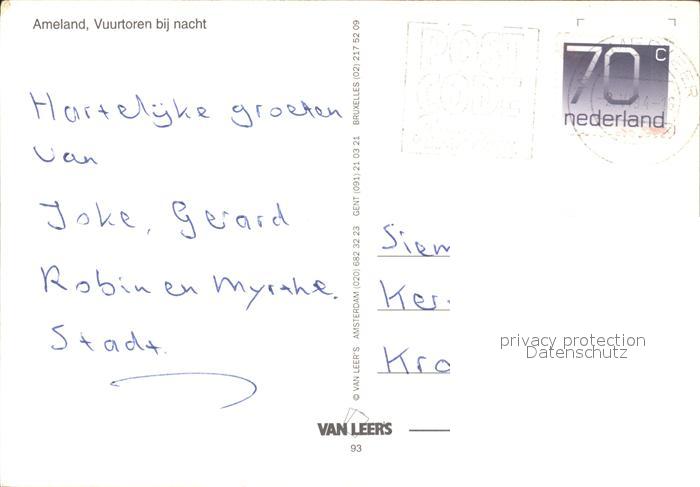 Ameland, Vuurtoren bij nacht
Hartelijke groeten
van
Joke, Gerard
Robin en Myrthe.
Stadt.
© VAN LEER'S AMSTERDAM (020) 682 32 23 GENT (091) 21 03 21 BRUXELLES (02) 217 52 09
POST
CODE
70 c
nederland
Siem
Ker.
Kro
privacy protection
Datenschutz
VAN LEER'S
93